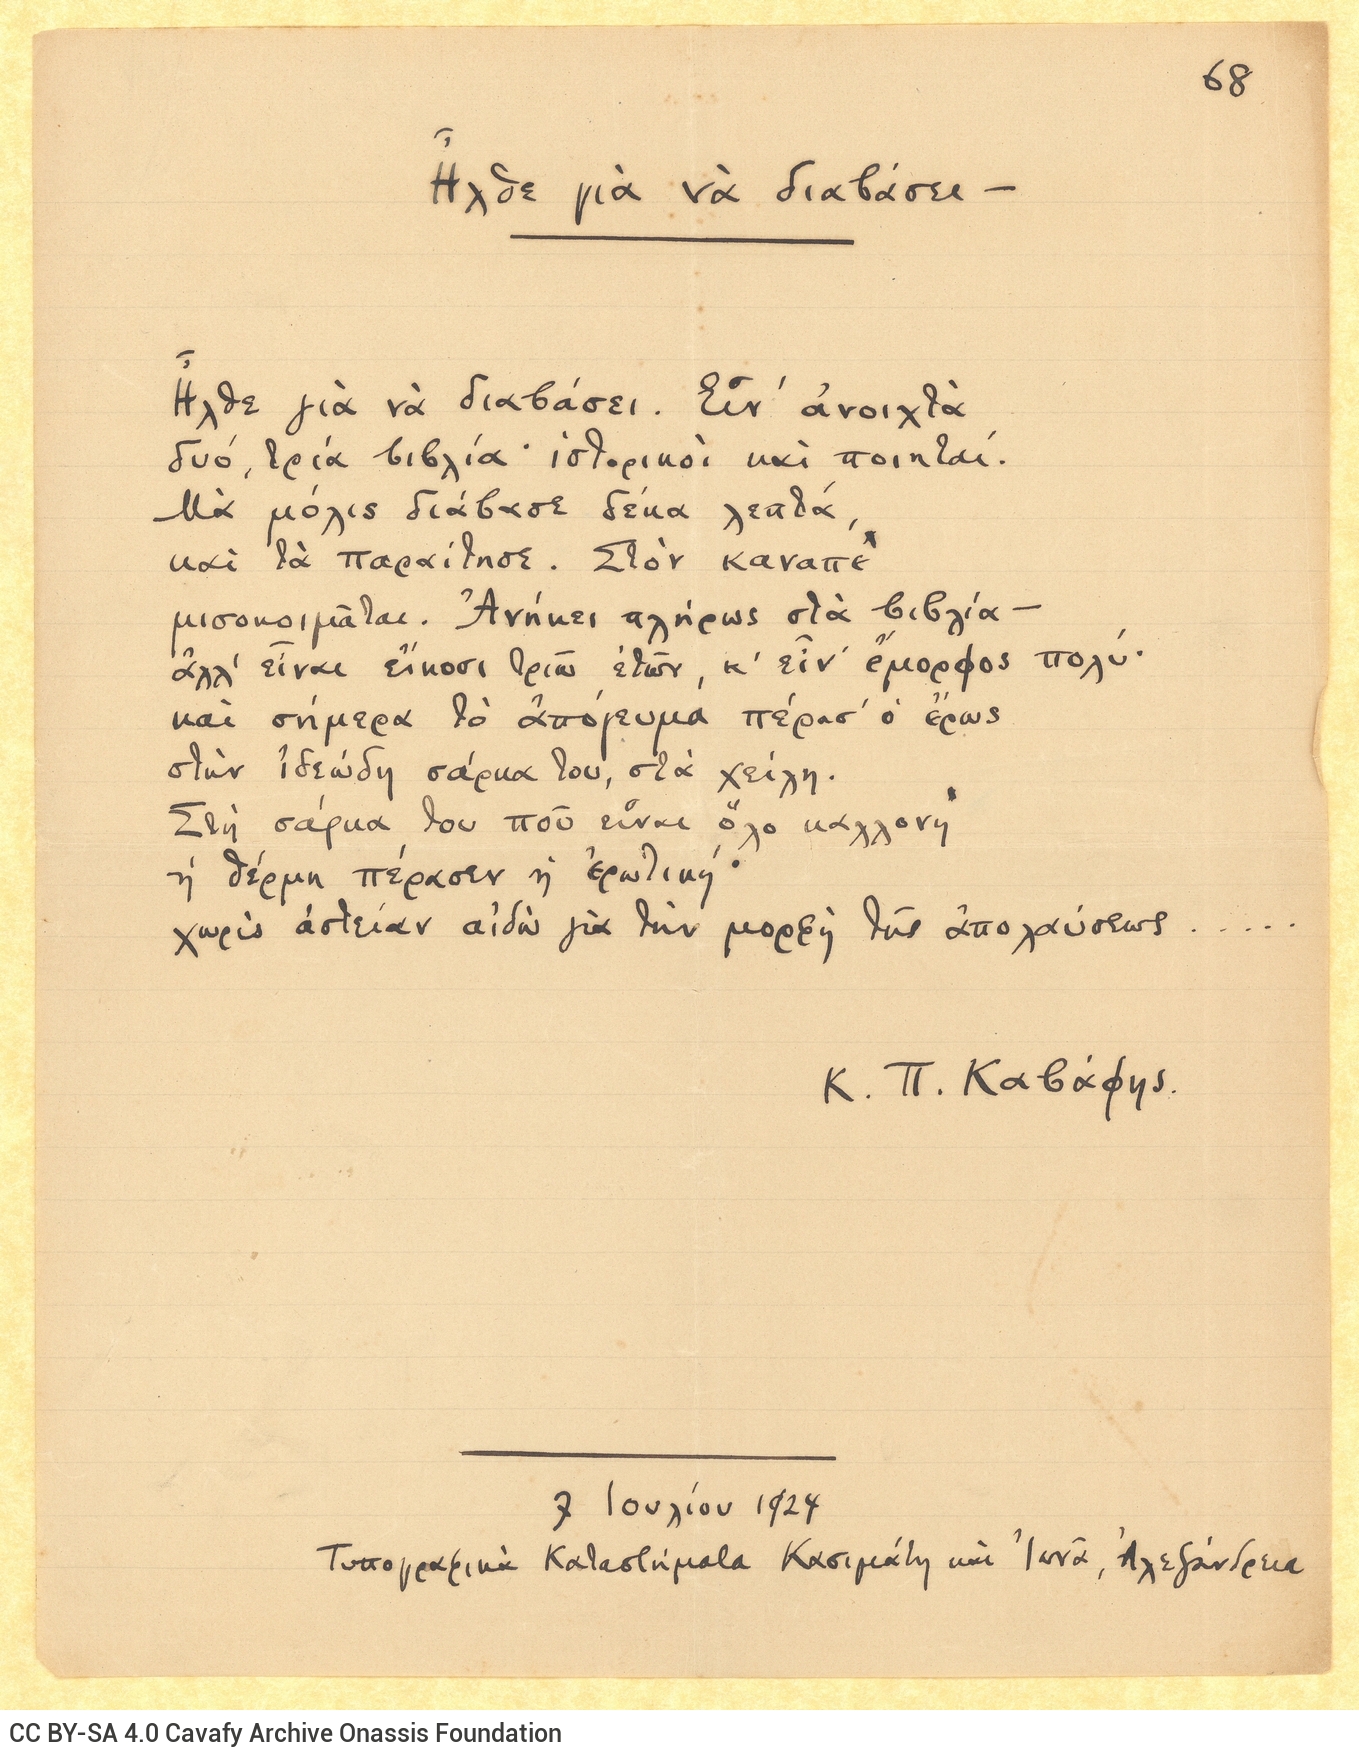 68
Ἦλθε γιὰ νὰ διαβάσει —
Ἦλθε γιὰ νὰ διαβάσει. Εἶν' ἀνοιχτὰ
δυό, τρία βιβλία· ἱστορικοὶ καὶ ποιηταί.
Μὰ μόλις διάβασε δέκα λεπτά,
καὶ τὰ παραίτησε. Στὸν καναπὲ
μισοκοιμᾶται. Ἀνήκει πλήρως στὰ βιβλία —
ἀλλ' εἶναι εἴκοσι τριῶ ἐτῶν, κ' εἶν' ἔμορφος πολύ·
καὶ σήμερα τὸ ἀπόγευμα πέρασ' ὁ ἔρως
στὴν ἰδεώδη σάρκα του, στὰ χείλη.
Στὴ σάρκα του ποῦ εἶναι ὅλο καλλονὴ
ἡ θέρμη πέρασεν ἡ ἐρωτική·
χωρὶς ἀστείαν αἰδὼ γιὰ τὴν μορφὴ τῆς ἀπολαύσεως . . . . .
Κ. Π. Καβάφης.
7 Ἰουλίου 1924
Τυπογραφικὰ Καταστήματα Κασιμάτη καὶ Ἰωνᾶ, Ἀλεξάνδρεια
CC BY-SA 4.0 Cavafy Archive Onassis Foundation